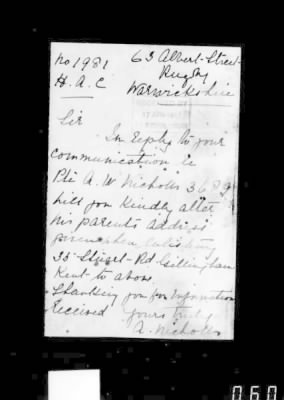 No 1981 63 Albert Street
Rugby
H. A. C Warwickshire
Sir
In Reply to your
Communication re
Pte A. W Nicholls 3689
will you Kindly alter
his parents address
given when enlisting
35 Stuart Rd Gillingham
Kent to above
Thanking you for Information
Received yours truly
A. Nicholls
060